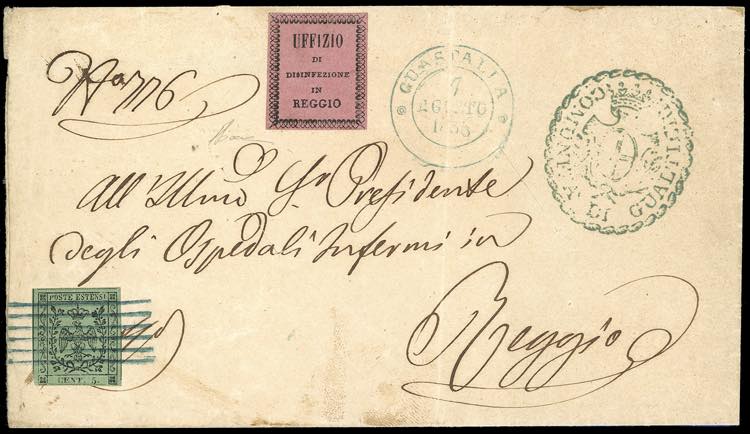 N° 776
UFFIZIO
DI
DISINFEZIONE
IN
REGGIO
GUASTALLA
7
AGOSTO
1855
COMUNITÀ
DI GUALTIERI
All' Illmo Sr Presidente
degli Ospedali Infermi in
Reggio
POSTE ESTENSI
CENT. 5.